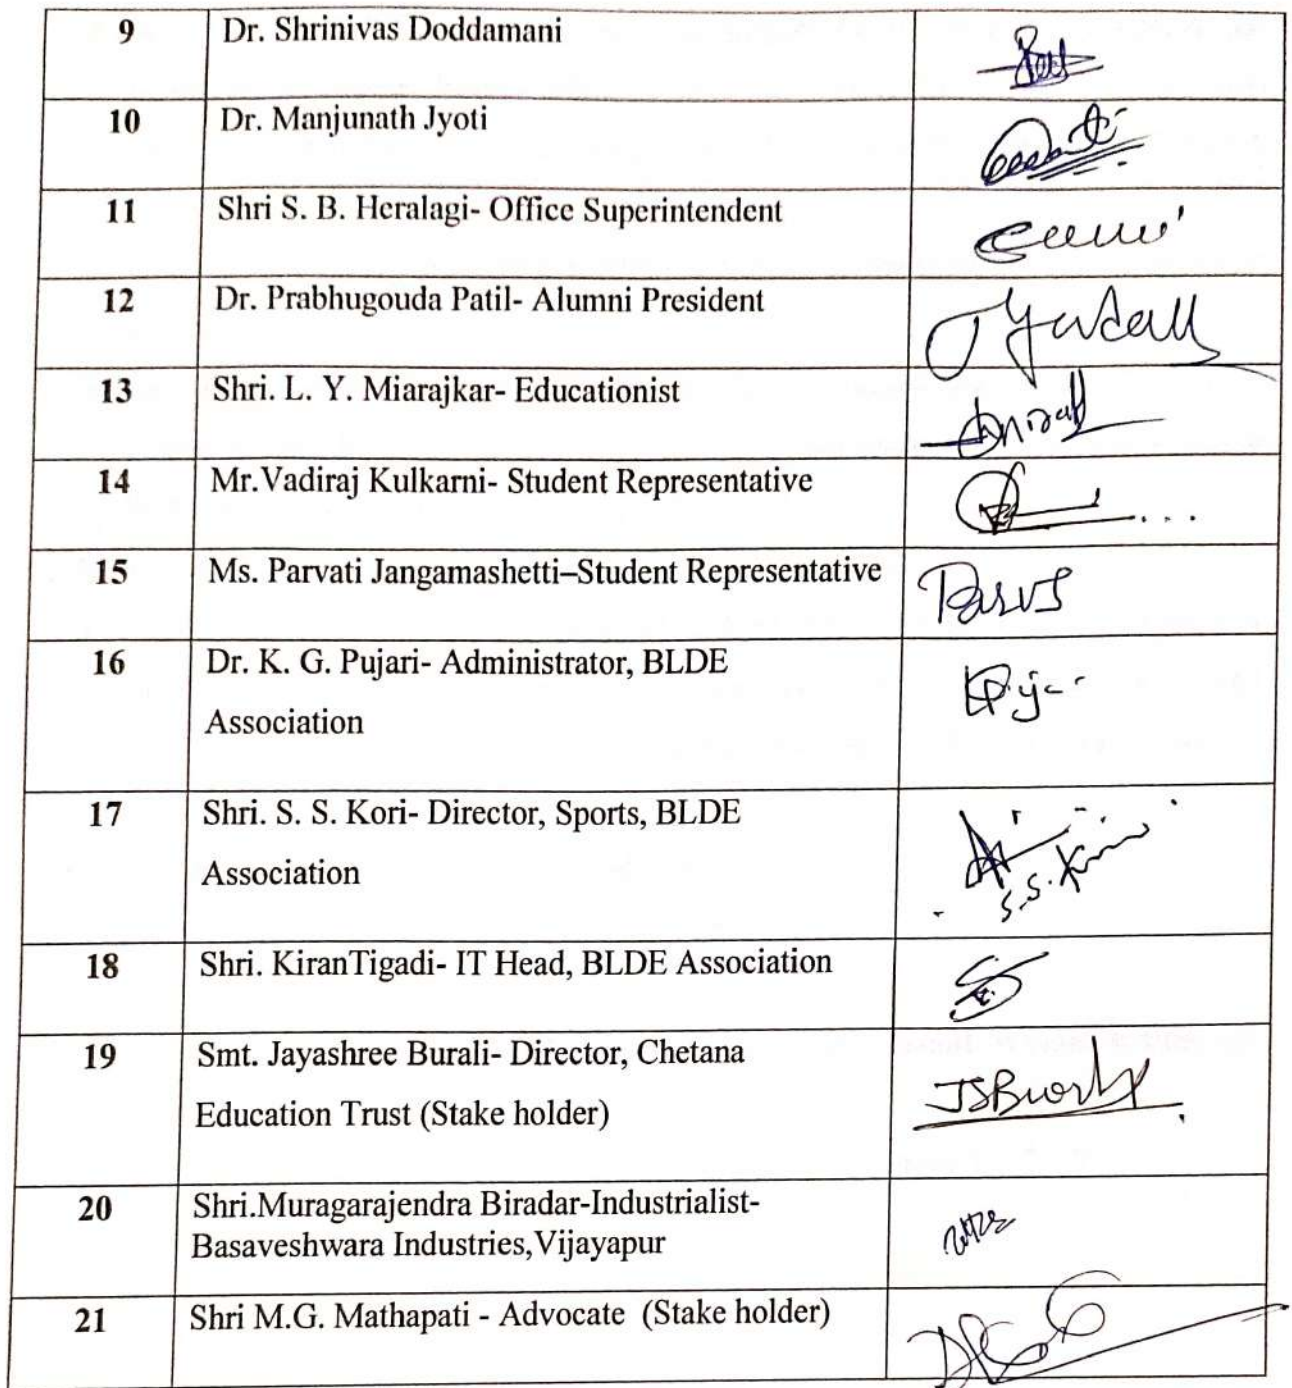 9 Dr. Shrinivas Doddamani
10 Dr. Manjunath Jyoti
11 Shri S. B. Heralagi- Office Superintendent
12 Dr. Prabhugouda Patil- Alumni President
13 Shri. L. Y. Miarajkar- Educationist
14 Mr.Vadiraj Kulkarni- Student Representative
15 Ms. Parvati Jangamashetti–Student Representative
16 Dr. K. G. Pujari- Administrator, BLDE
Association
17 Shri. S. S. Kori- Director, Sports, BLDE
Association
18 Shri. KiranTigadi- IT Head, BLDE Association
19 Smt. Jayashree Burali- Director, Chetana
Education Trust (Stake holder)
20 Shri.Muragarajendra Biradar-Industrialist-
Basaveshwara Industries,Vijayapur
21 Shri M.G. Mathapati - Advocate (Stake holder)